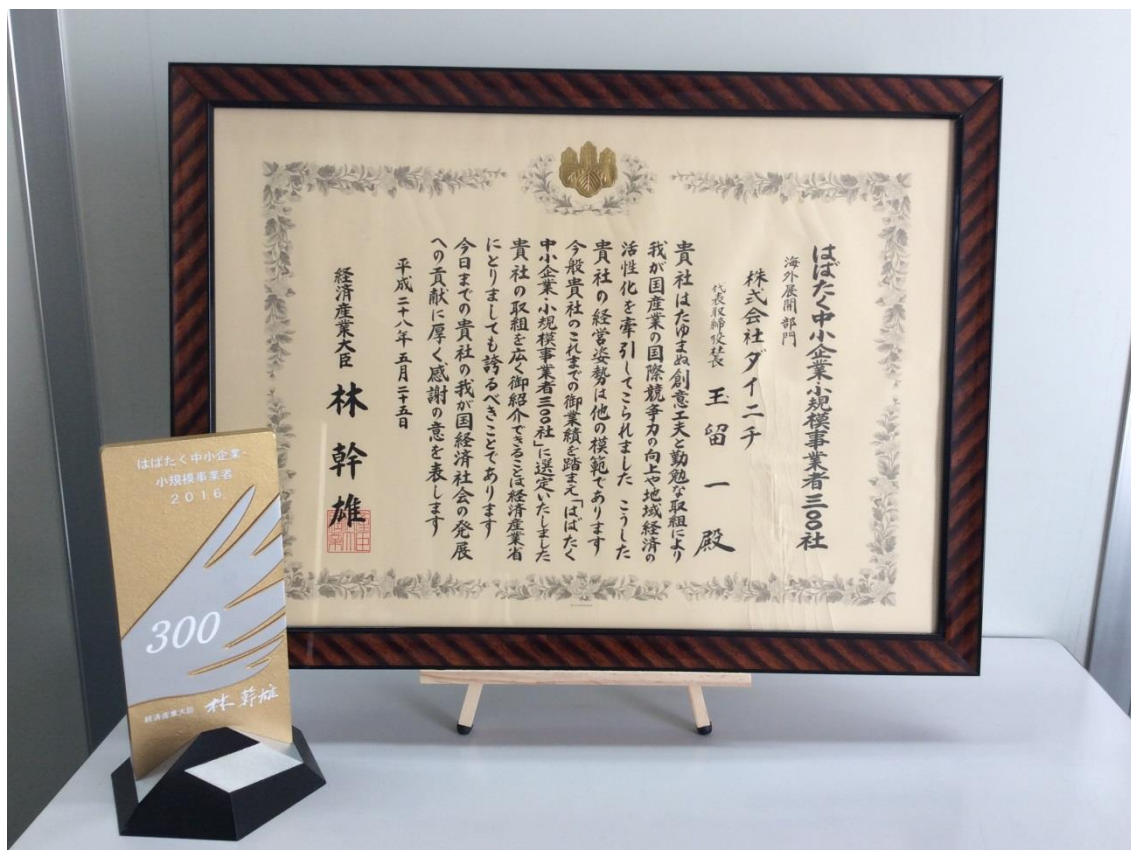 はばたく中小企業・小規模事業者三〇〇社
海外展開部門
株式会社ダイニチ
代表取締役社長 玉留一殿
貴社はたゆまぬ創意工夫と勤勉な取組により
我が国産業の国際競争力の向上や地域経済の
活性化を牽引してこられました こうした
貴社の経営姿勢は他の模範であります
今般貴社のこれまでの御業績を踏まえ「はばたく
中小企業・小規模事業者三〇〇社」に選定いたしました
貴社の取組を広く御紹介できることは経済産業省
にとりましても誇るべきことであります
今日までの貴社の我が国経済社会の発展
への貢献に厚く感謝の意を表します
平成二十八年五月二十五日
経済産業大臣 林幹雄
はばたく中小企業・
小規模事業者
2016
300
経済産業大臣 林幹雄